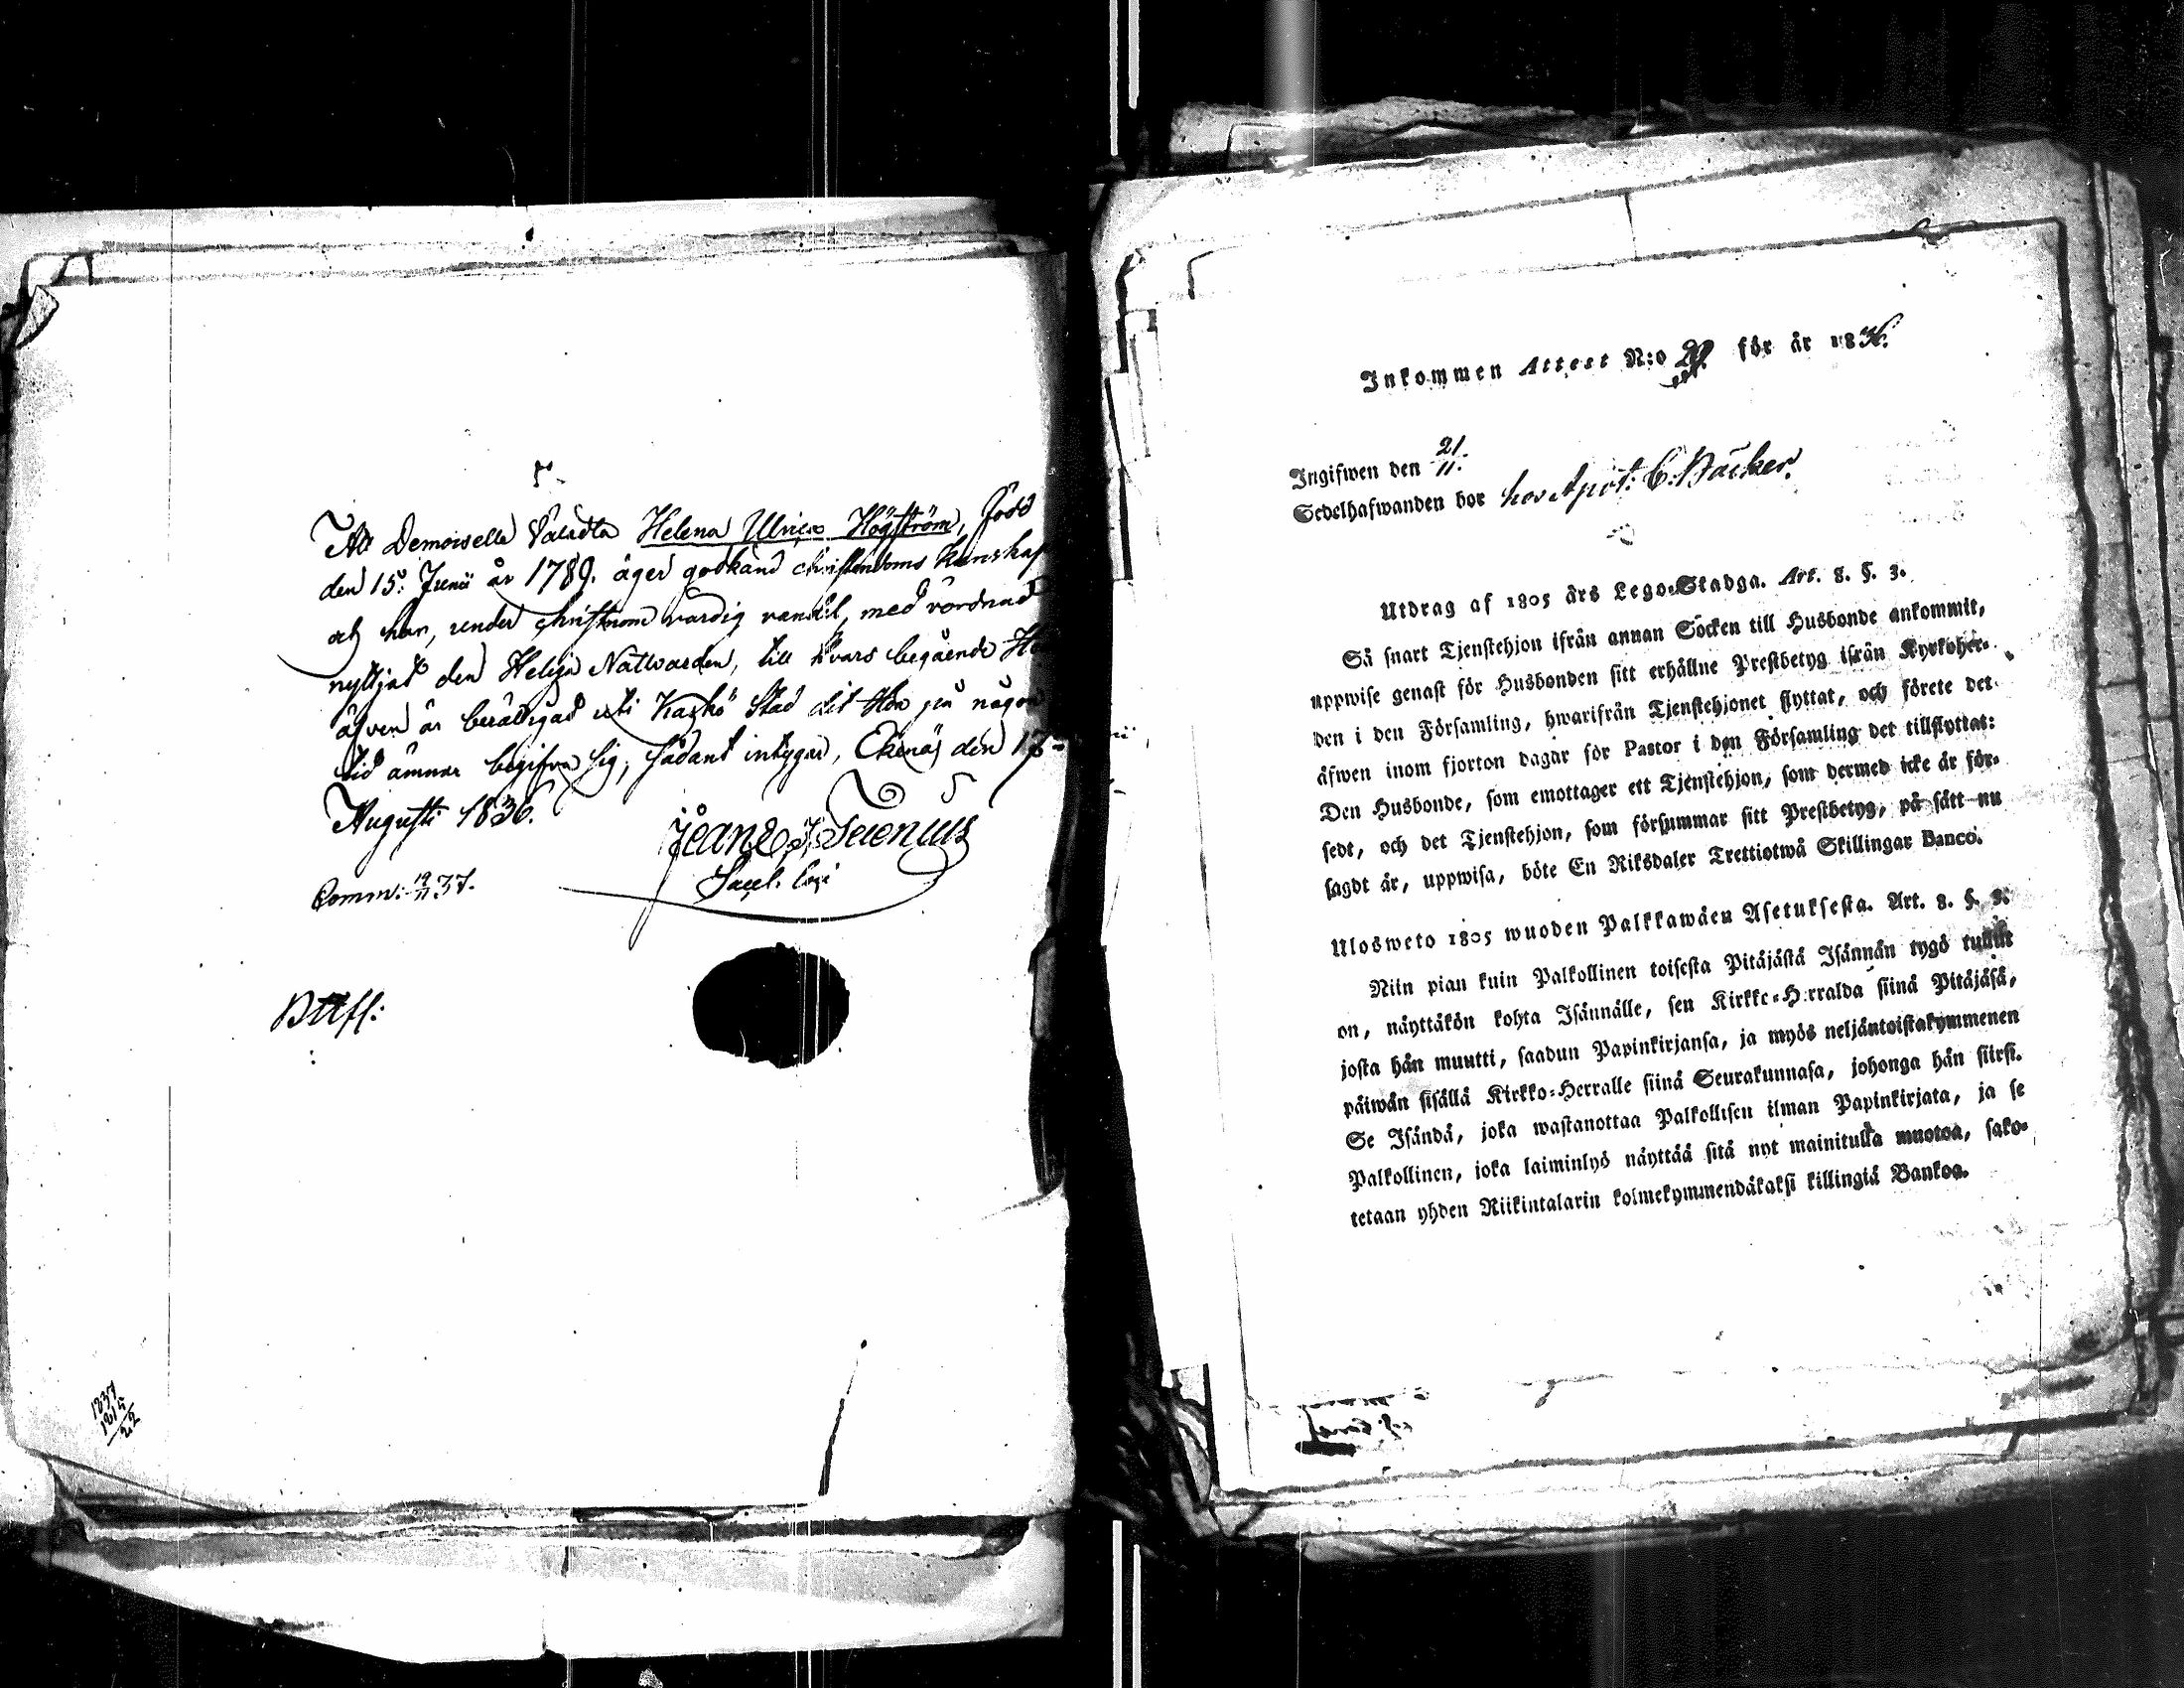 Att Demoiselle Helena Ulrica Högström, född
den 15de Junii år 1789. äger godkänd christendoms kunskap
och har, under christeom värdig vandel, med vördnad
nyttjat den Heliga Nattvarden, till hvars begående H
äfven är berättigad uti Kaskö Stad dit Hon på någon
tid ämnar begifva sig, sådant intygar, Ekenäs den 17
Augusti 1836.
Comm: 19/11 37.
Battf:
1837
1815
22
Inkommen Attest N:o 29 för år 1836.
Ingifwen den 21/11.
Sedelhafwanden bor hos Apot: C. Bäcker.
Utdrag af 1805 års Lego-Stadga. Art. 8. §. 3.
Så snart Tjenstehjon ifrån annan Socken till Husbonde ankommit,
uppwise genast för Husbonden sitt erhållne Prestbetyg ifrån Kyrkoher-
den i den Församling, hwarifrån Tjenstehjonet flyttat, och förete det
äfwen inom fjorton dagar för Pastor i den Församling det tillflyttat:
Den Husbonde, som emottager ett Tjenstehjon, som dermed icke är för-
sedt, och det Tjenstehjon, som försummar sitt Prestbetyg, på sätt nu
sagdt är, uppwisa, böte En Riksdaler Trettiotwå Skillingar Banco.
Ulosweto 1805 wuoden Palkkawäen Asetuksesta. Art. 8. §. 3.
Niin pian kuin Palkollinen toisesta Pitäjästä Isännän tygö tullut
on, näyttäkön kohta Isännälle, sen Kirkko-Herralda siinä Pitäjäsä,
josta hän muutti, saadun Papinkirjansa, ja myös neljäntoistakymmenen
päiwän sisällä Kirkko-Herralle siinä Seurakunnasa, johonga hän siirsi.
Se Isändä, joka wastanottaa Palkollisen ilman Papinkirjata, ja se
Palkollinen, joka laiminlyö näyttää sitä nyt mainitulla muotoa, sako-
tetaan yhden Riikintalarin kolmekymmendäkaksi killingiä Bankoa.